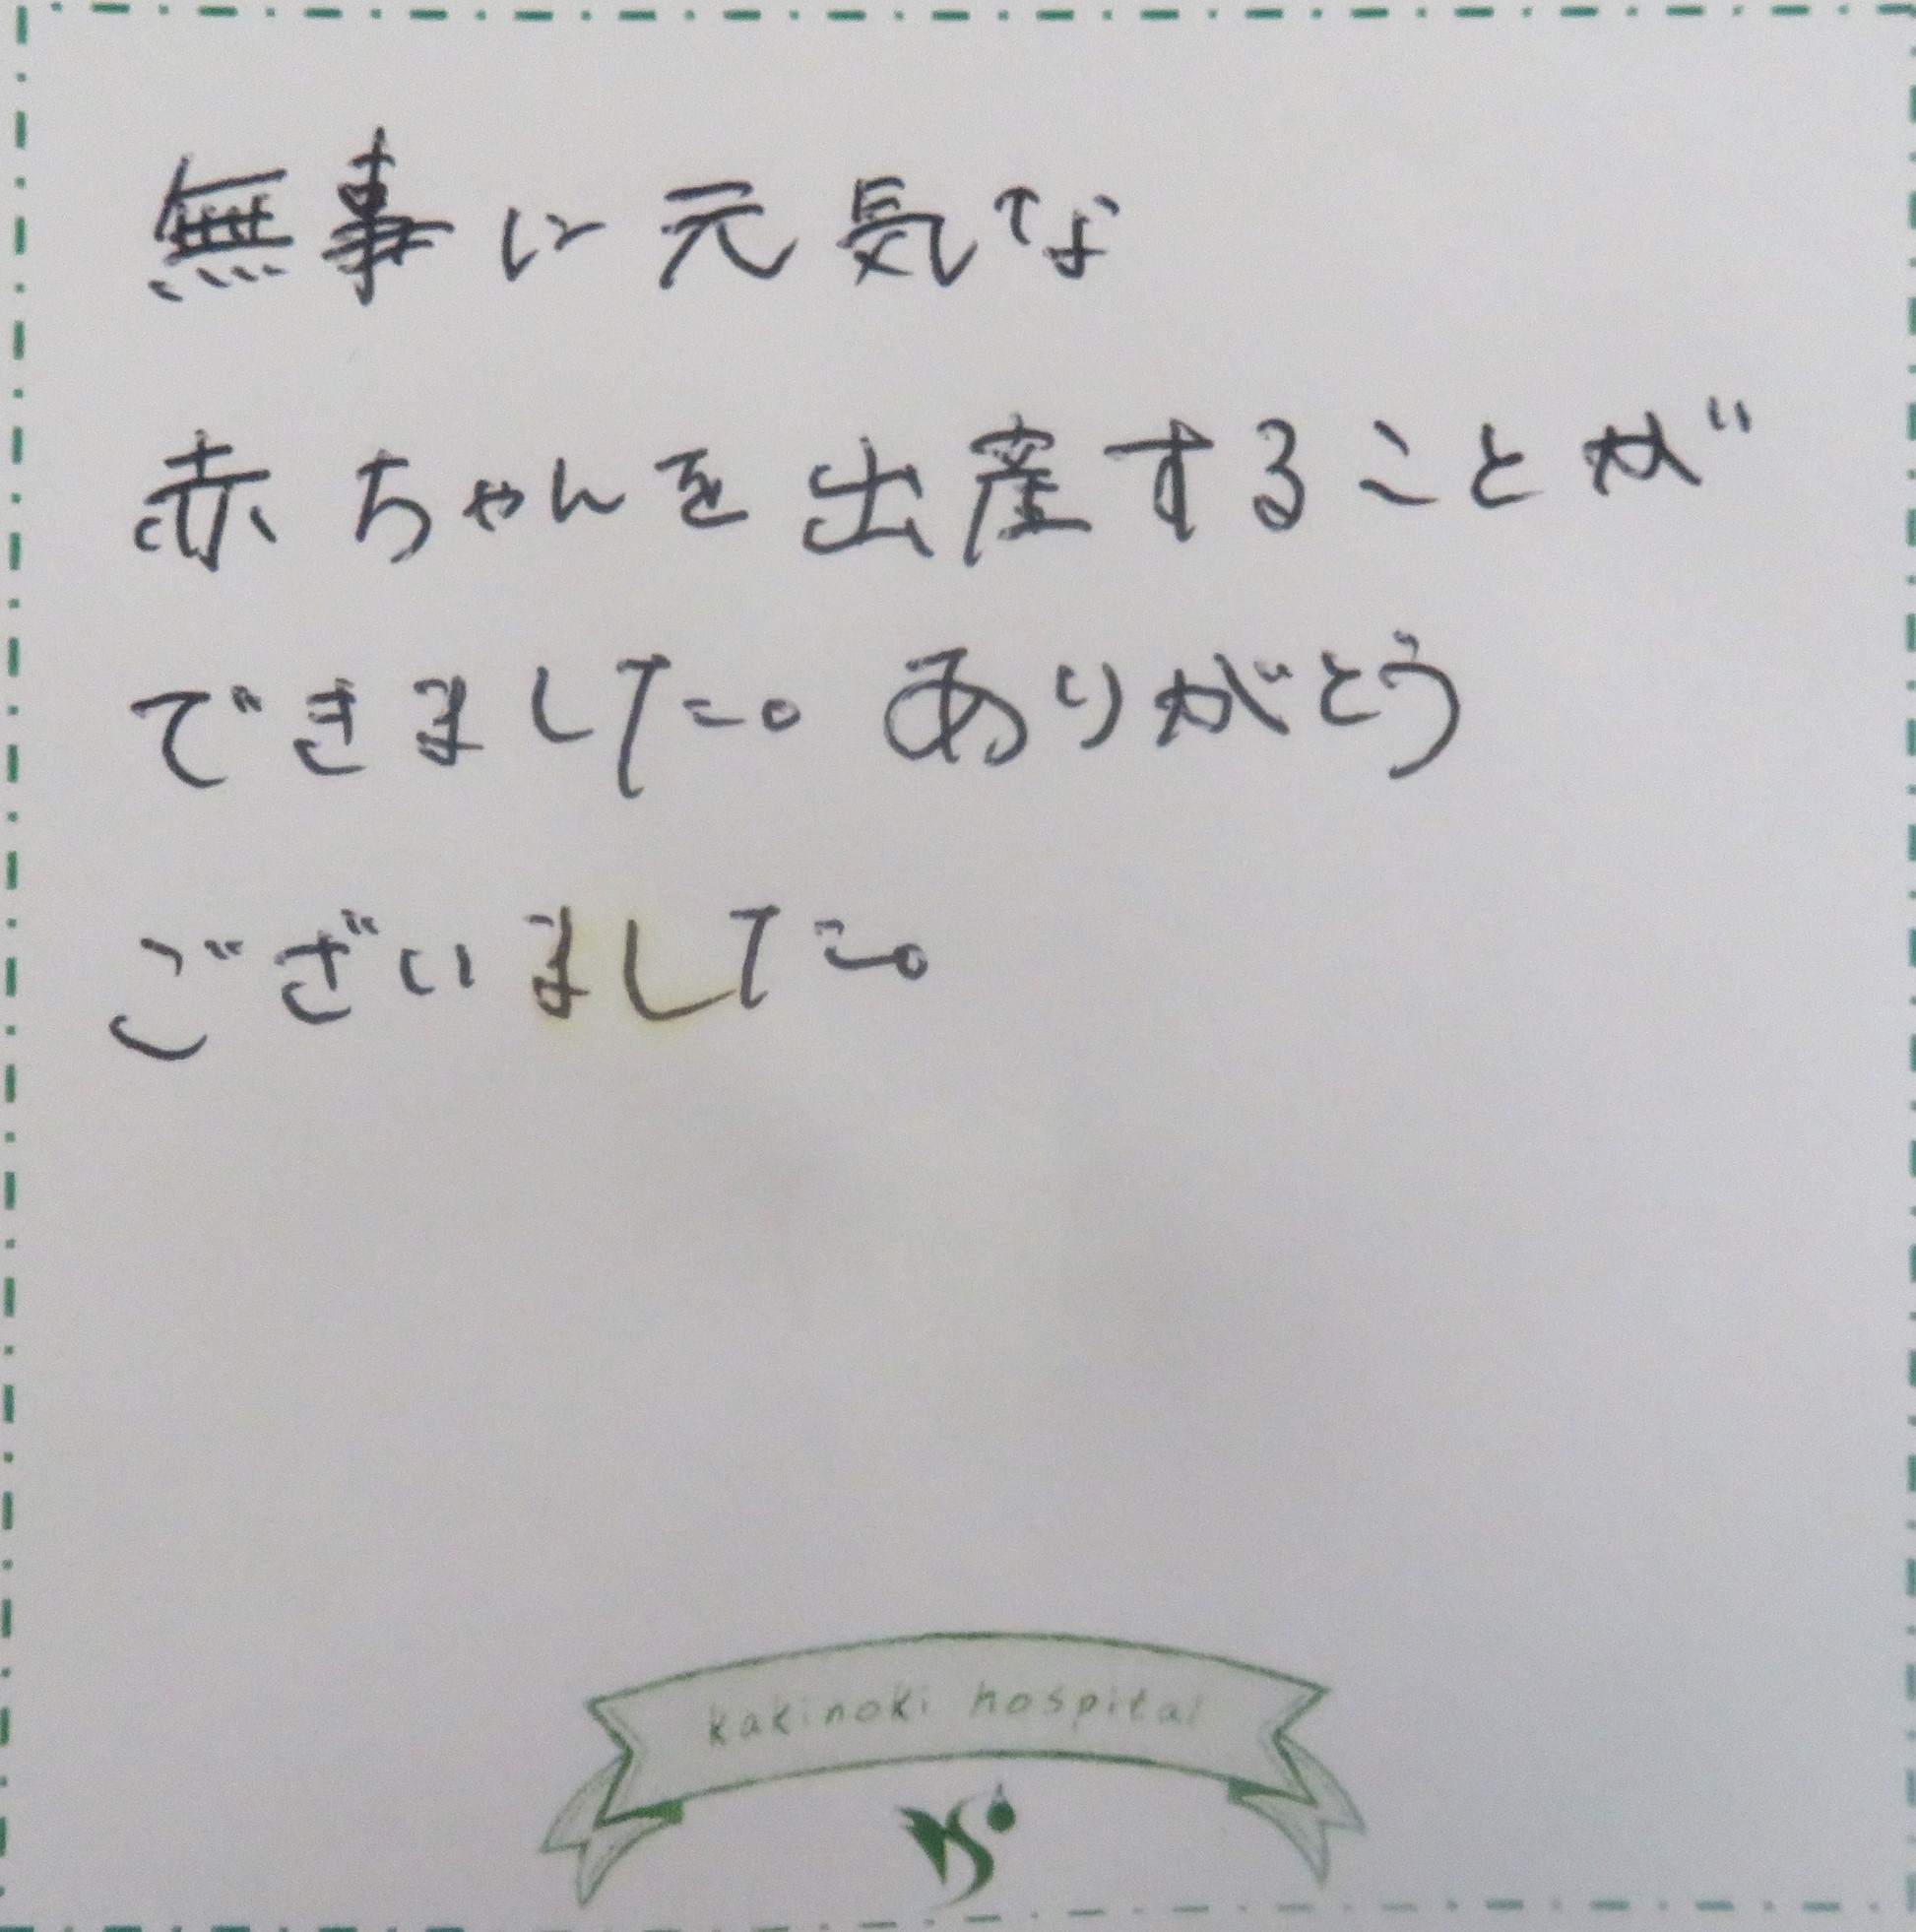 無事に元気な
赤ちゃんを出産することが
できました。ありがとう
ございました。
kakinoki hospital